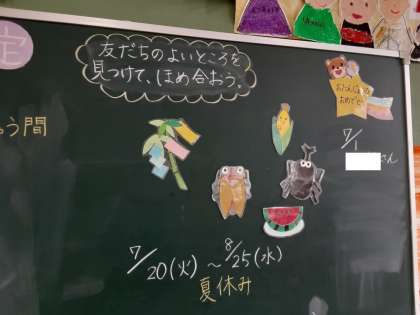 友だちのよいところを
見つけて、ほめ合おう。
定
う間
おたんじょうび
おめでとう
7/1
さん
7/20(火)～8/25(水)
夏休み